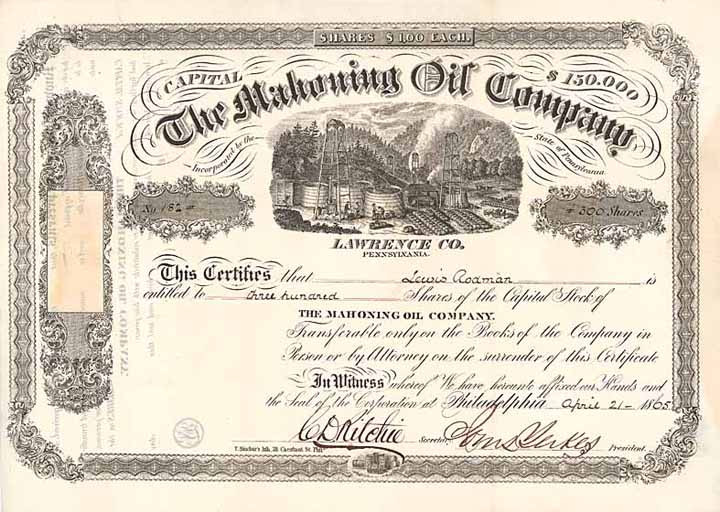 SHARES $1,00 EACH.
CAPITAL $150.000
The Mahoning Oil Company
Incorporated by the State of Pennsylvania
No 182
300 Shares
LAWRENCE CO.
PENNSYLVANIA.
This Certifies that Lewis Rodman is
entitled to three hundred Shares of the Capital Stock of
THE MAHONING OIL COMPANY.
Transferable only on the Books of the Company in
Person or by Attorney on the surrender of this Certificate
In Witness whereof We have hereunto affixed our Hands and
the Seal of the Corporation at Philadelphia April 21 - 1865
C D Ritchie Secretary President.
T. Sinclair's lith, Phil